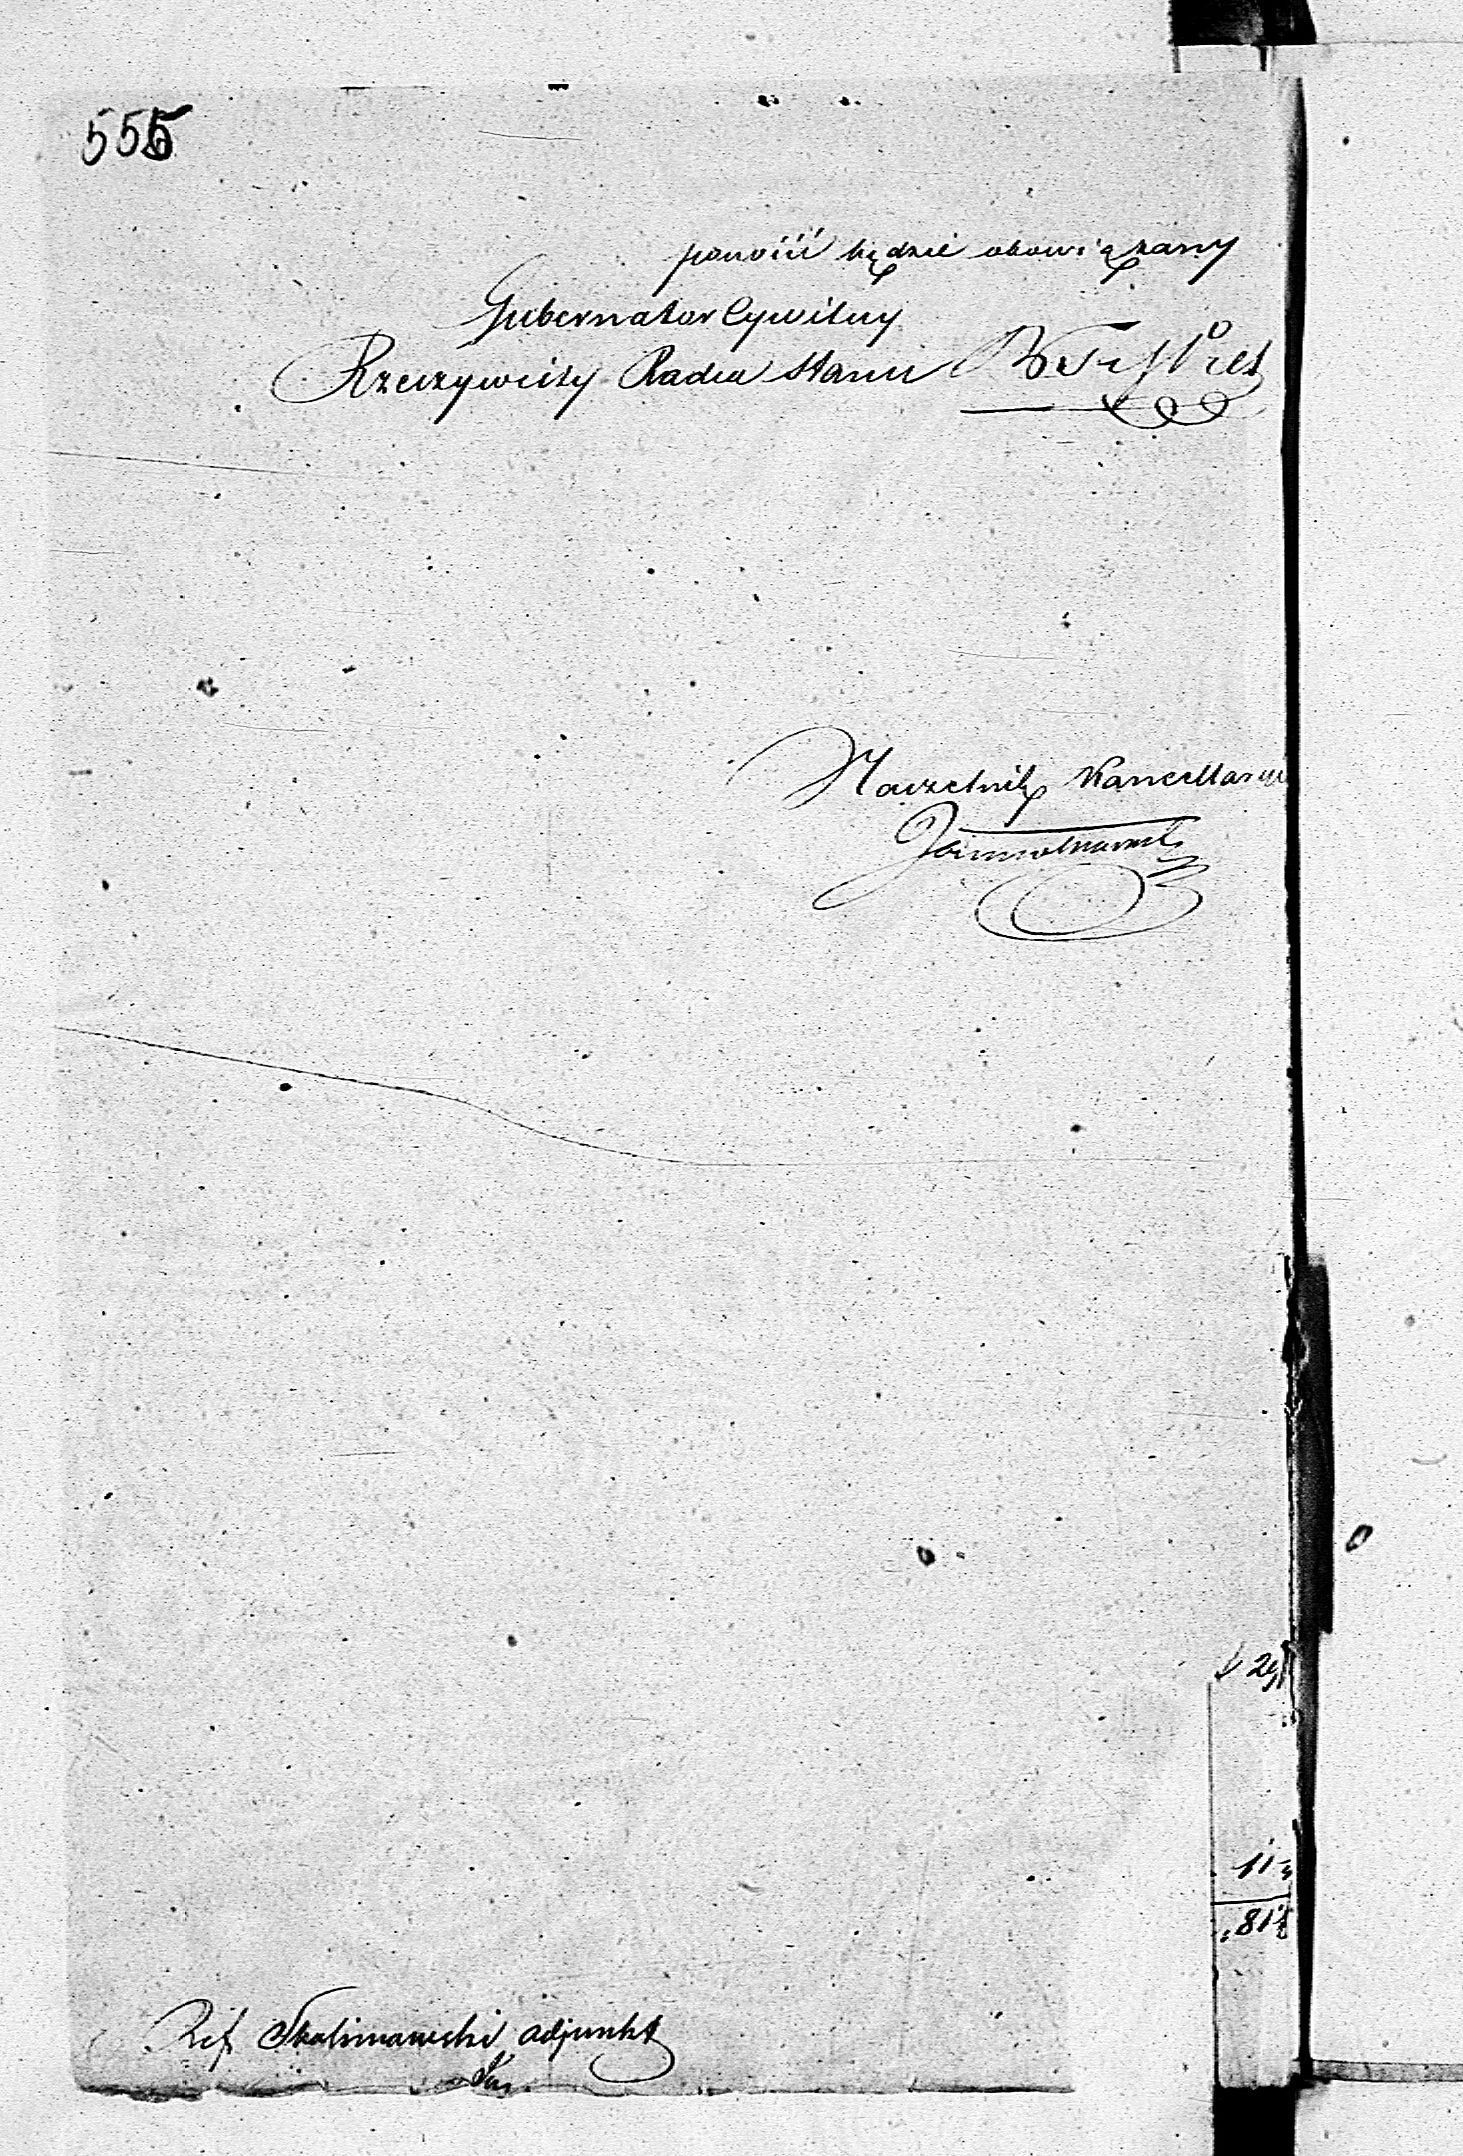 555
ponosić będzie obowiązany
Gubernator Cywilny
Rzeczywisty Radca Stanu
Naczelnik Kancellaryi
Ref Skalimowski adjunkt
11
81